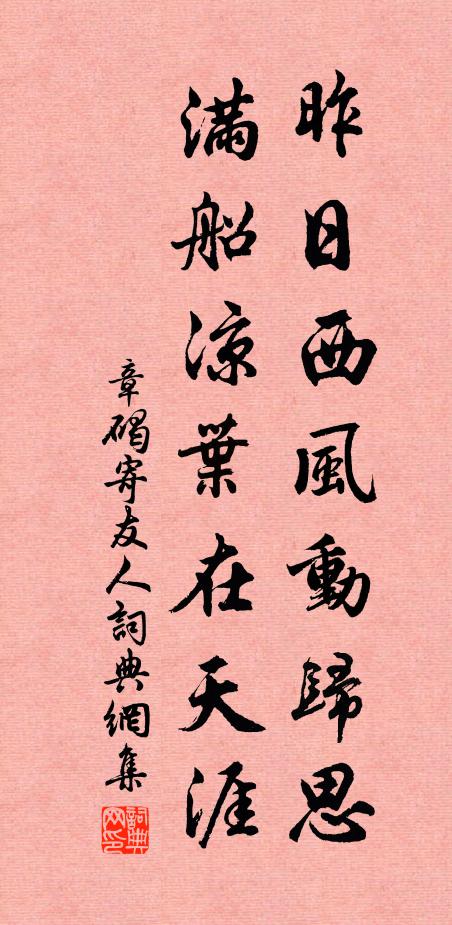 昨日西風動歸思
滿船涼葉在天涯
章碣寄友人詞典網集
詞典网印